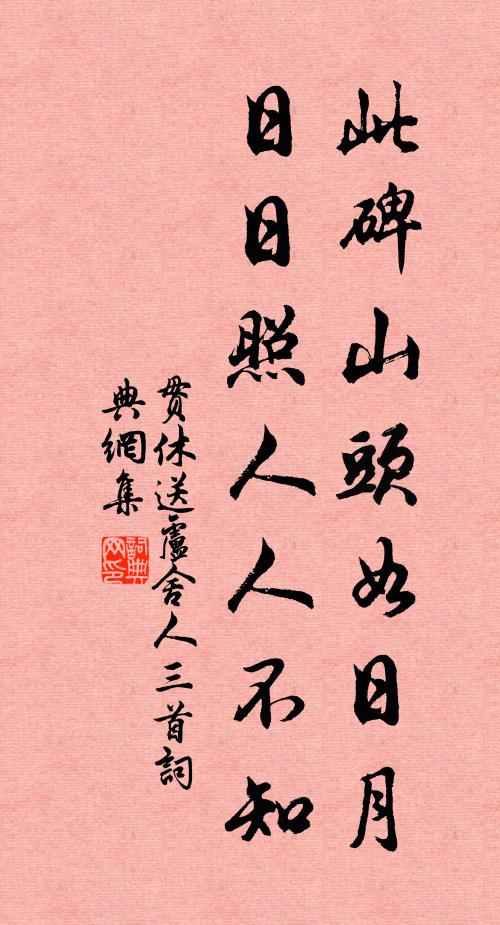 此碑山頭如日月
日日照人人不知
貫休送盧舍人三首詞
典網集
詞典
网印